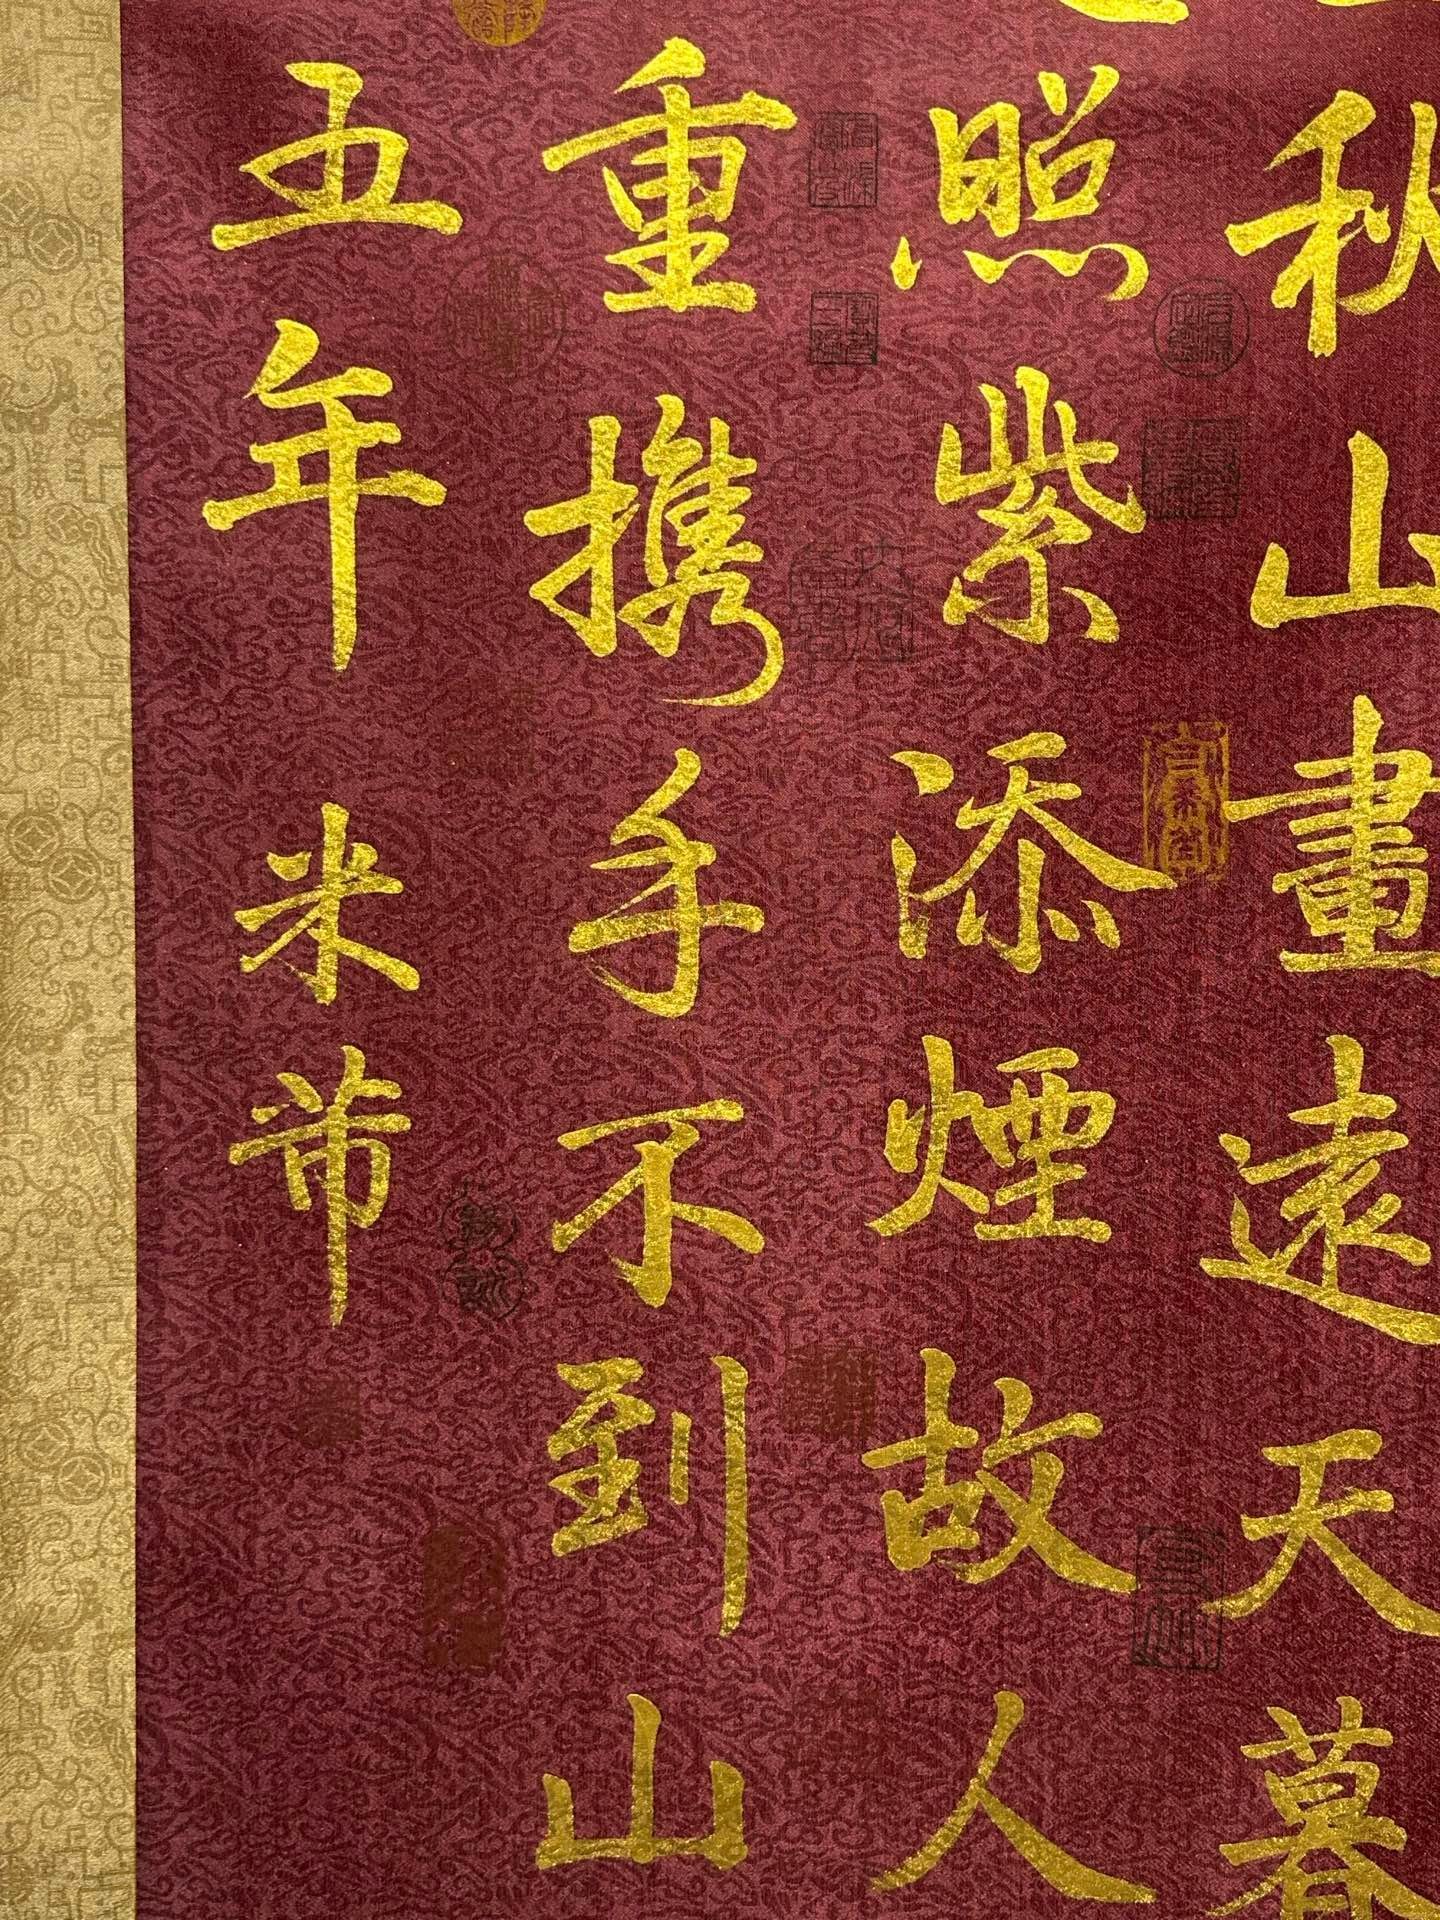 秋山畫遠天暮
照紫添煙故人
重携手不到山
五年 米芾